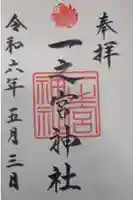 奉拝
一之宮神社
令和六年五月三日